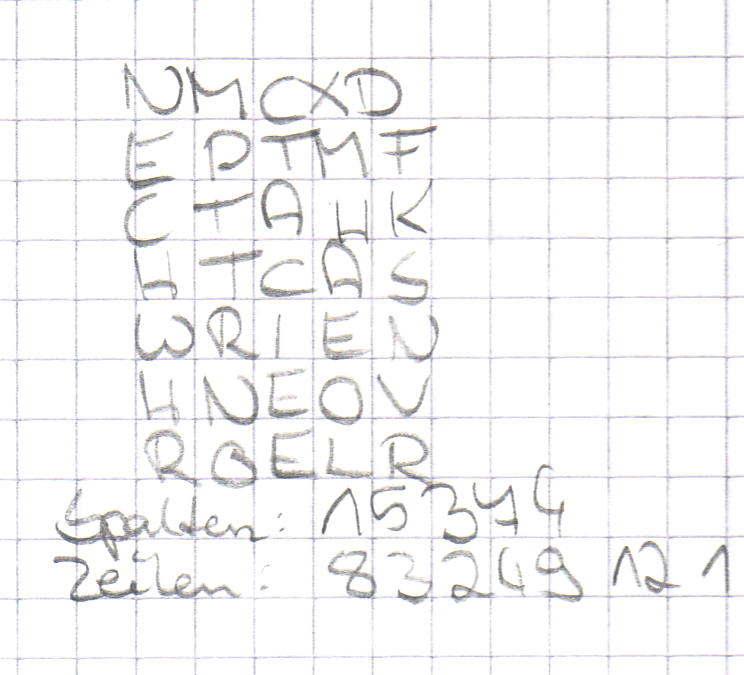 NMCXD
EDTMF
CTAHK
HTCAS
WRIEN
HNEOV
RQELR
Spalten: 15374
Zeilen: 83249 12 1